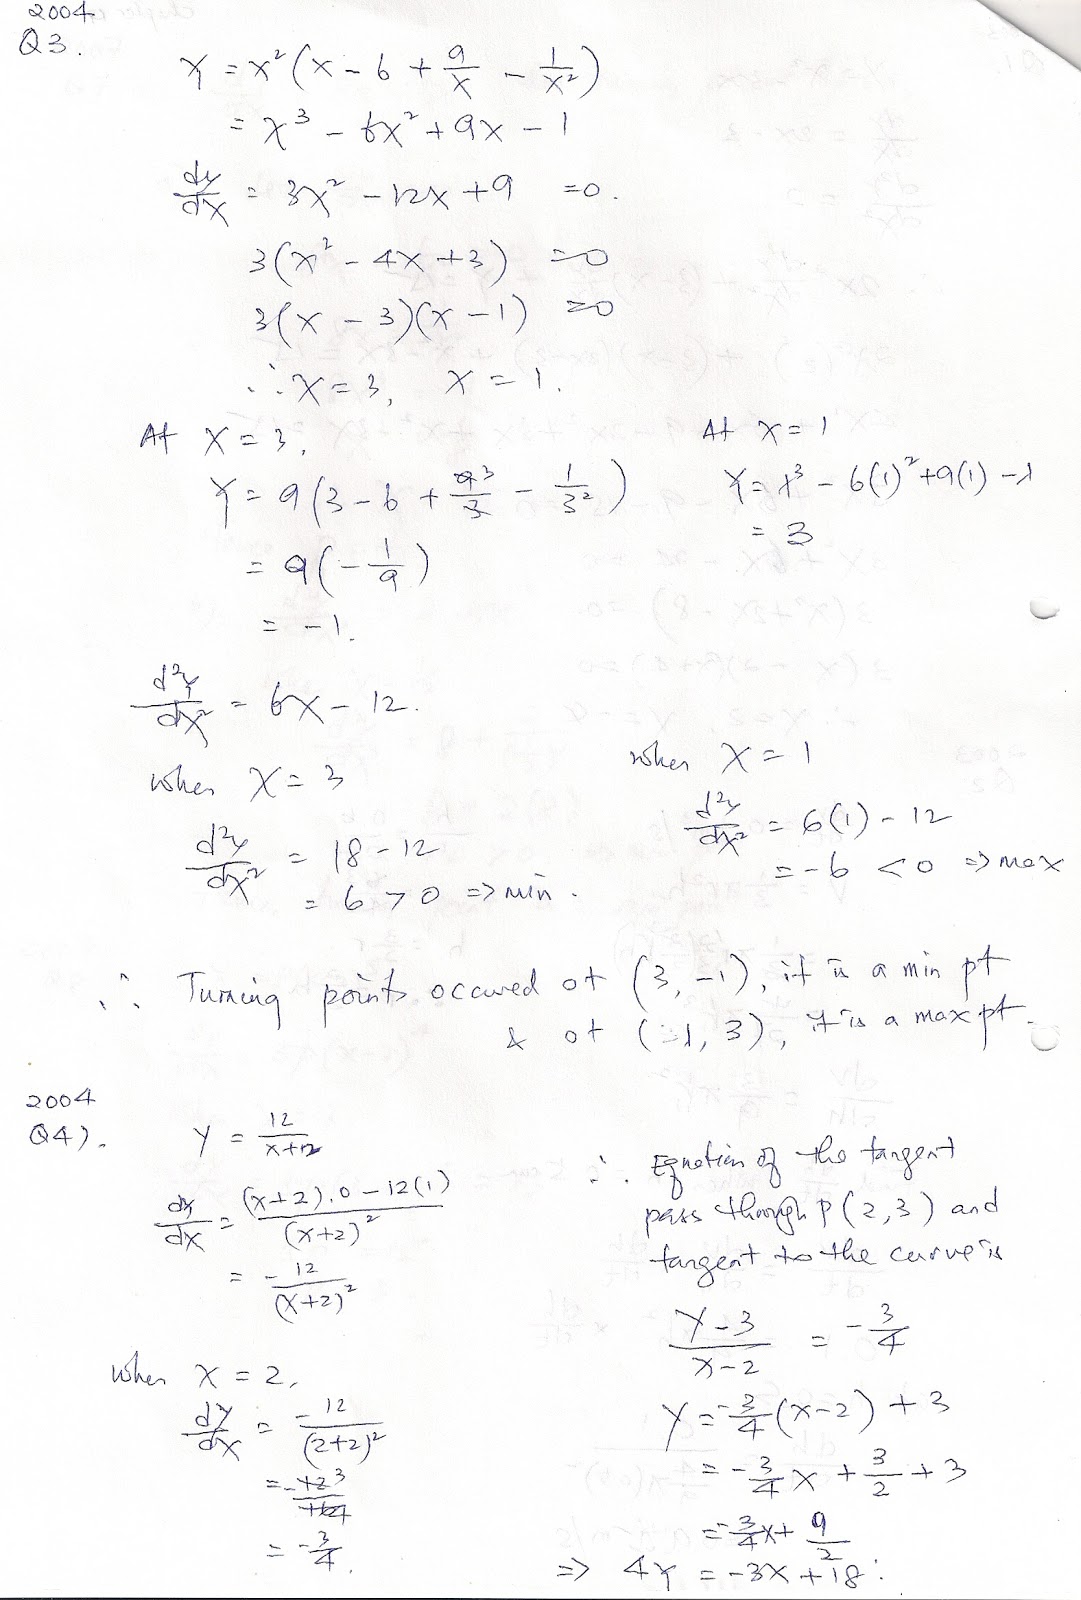 2004
Q3.
y = x²(x - 6 + 9/x - 1/x²)
= x³ - 6x² + 9x - 1
dy/dx = 3x² - 12x + 9 = 0.
3(x² - 4x + 3) = 0
3(x - 3)(x - 1) = 0
∴ x = 3, x = 1.
At x = 3,
y = 9(3 - 6 + 9/3 - 1/3²)
= 9(-1/9)
= -1.
At x = 1
y = 1³ - 6(1)² + 9(1) - 1
= 3
d²y/dx² = 6x - 12.
when x = 3
d²y/dx² = 18 - 12
= 6 > 0 => min.
when x = 1
d²y/dx² = 6(1) - 12
= -6 < 0 => max
∴ Turning points occured at (3, -1), it is a min pt
& at (1, 3), it is a max pt.
2004
Q4).
y = 12/(x+2)
dy/dx = ((x+2).0 - 12(1))/(x+2)²
= -12/(x+2)²
when x = 2,
dy/dx = -12/(2+2)²
= -12/16
= -3/4.
∴ Equation of the tangent
pass through P(2,3) and
tangent to the curve is
(y-3)/(x-2) = -3/4
y = -3/4(x-2) + 3
= -3/4x + 3/2 + 3
= -3/4x + 9/2
=> 4y = -3x + 18.